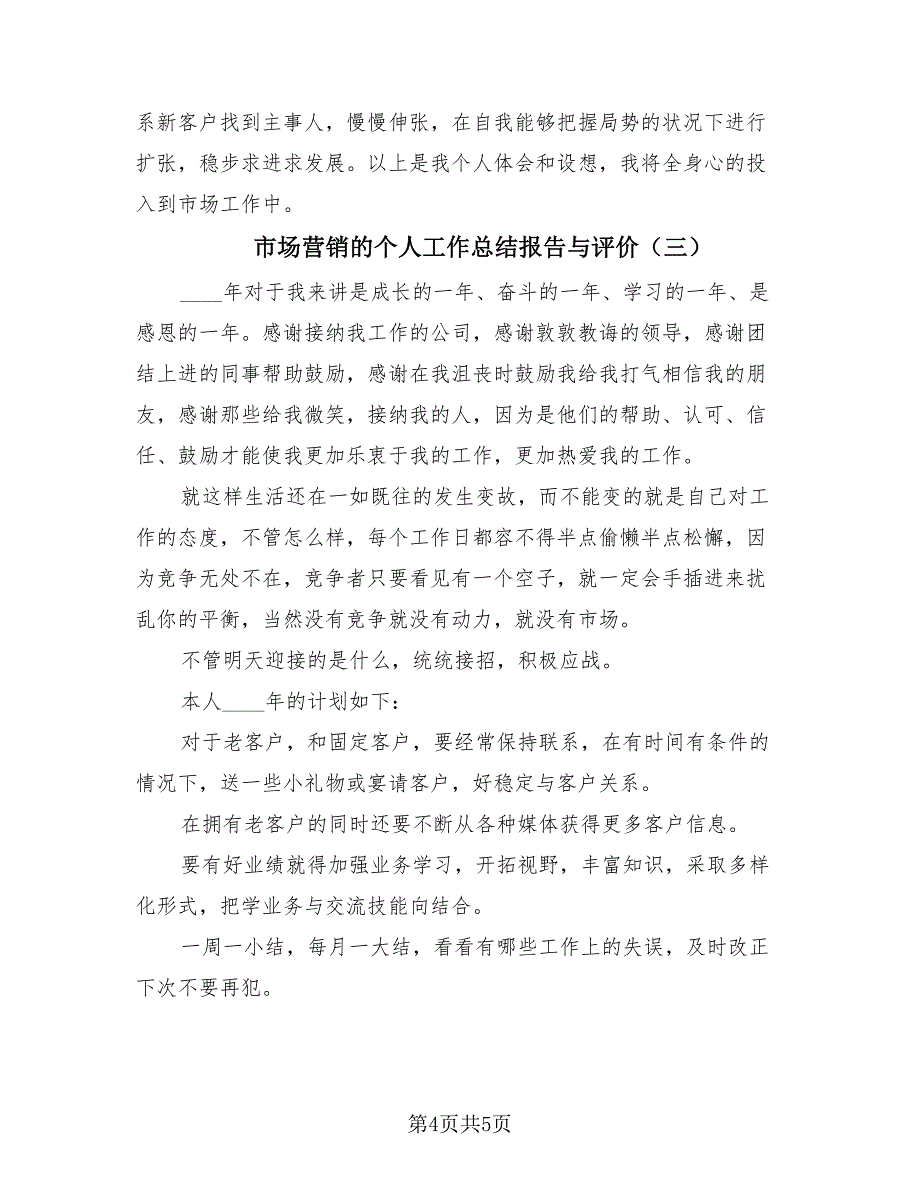 系新客户找到主事人，慢慢伸张，在自我能够把握局势的状况下进行
扩张，稳步求进求发展。以上是我个人体会和设想，我将全身心的投
入到市场工作中。
市场营销的个人工作总结报告与评价（三）
____年对于我来讲是成长的一年、奋斗的一年、学习的一年、是
感恩的一年。感谢接纳我工作的公司，感谢敦敦教诲的领导，感谢团
结上进的同事帮助鼓励，感谢在我沮丧时鼓励我给我打气相信我的朋
友，感谢那些给我微笑，接纳我的人，因为是他们的帮助、认可、信
任、鼓励才能使我更加乐衷于我的工作，更加热爱我的工作。
就这样生活还在一如既往的发生变故，而不能变的就是自己对工
作的态度，不管怎么样，每个工作日都容不得半点偷懒半点松懈，因
为竞争无处不在，竞争者只要看见有一个空子，就一定会手插进来扰
乱你的平衡，当然没有竞争就没有动力，就没有市场。
不管明天迎接的是什么，统统接招，积极应战。
本人____年的计划如下：
对于老客户，和固定客户，要经常保持联系，在有时间有条件的
情况下，送一些小礼物或宴请客户，好稳定与客户关系。
在拥有老客户的同时还要不断从各种媒体获得更多客户信息。
要有好业绩就得加强业务学习，开拓视野，丰富知识，采取多样
化形式，把学业务与交流技能向结合。
一周一小结，每月一大结，看看有哪些工作上的失误，及时改正
下次不要再犯。
第4页共5页